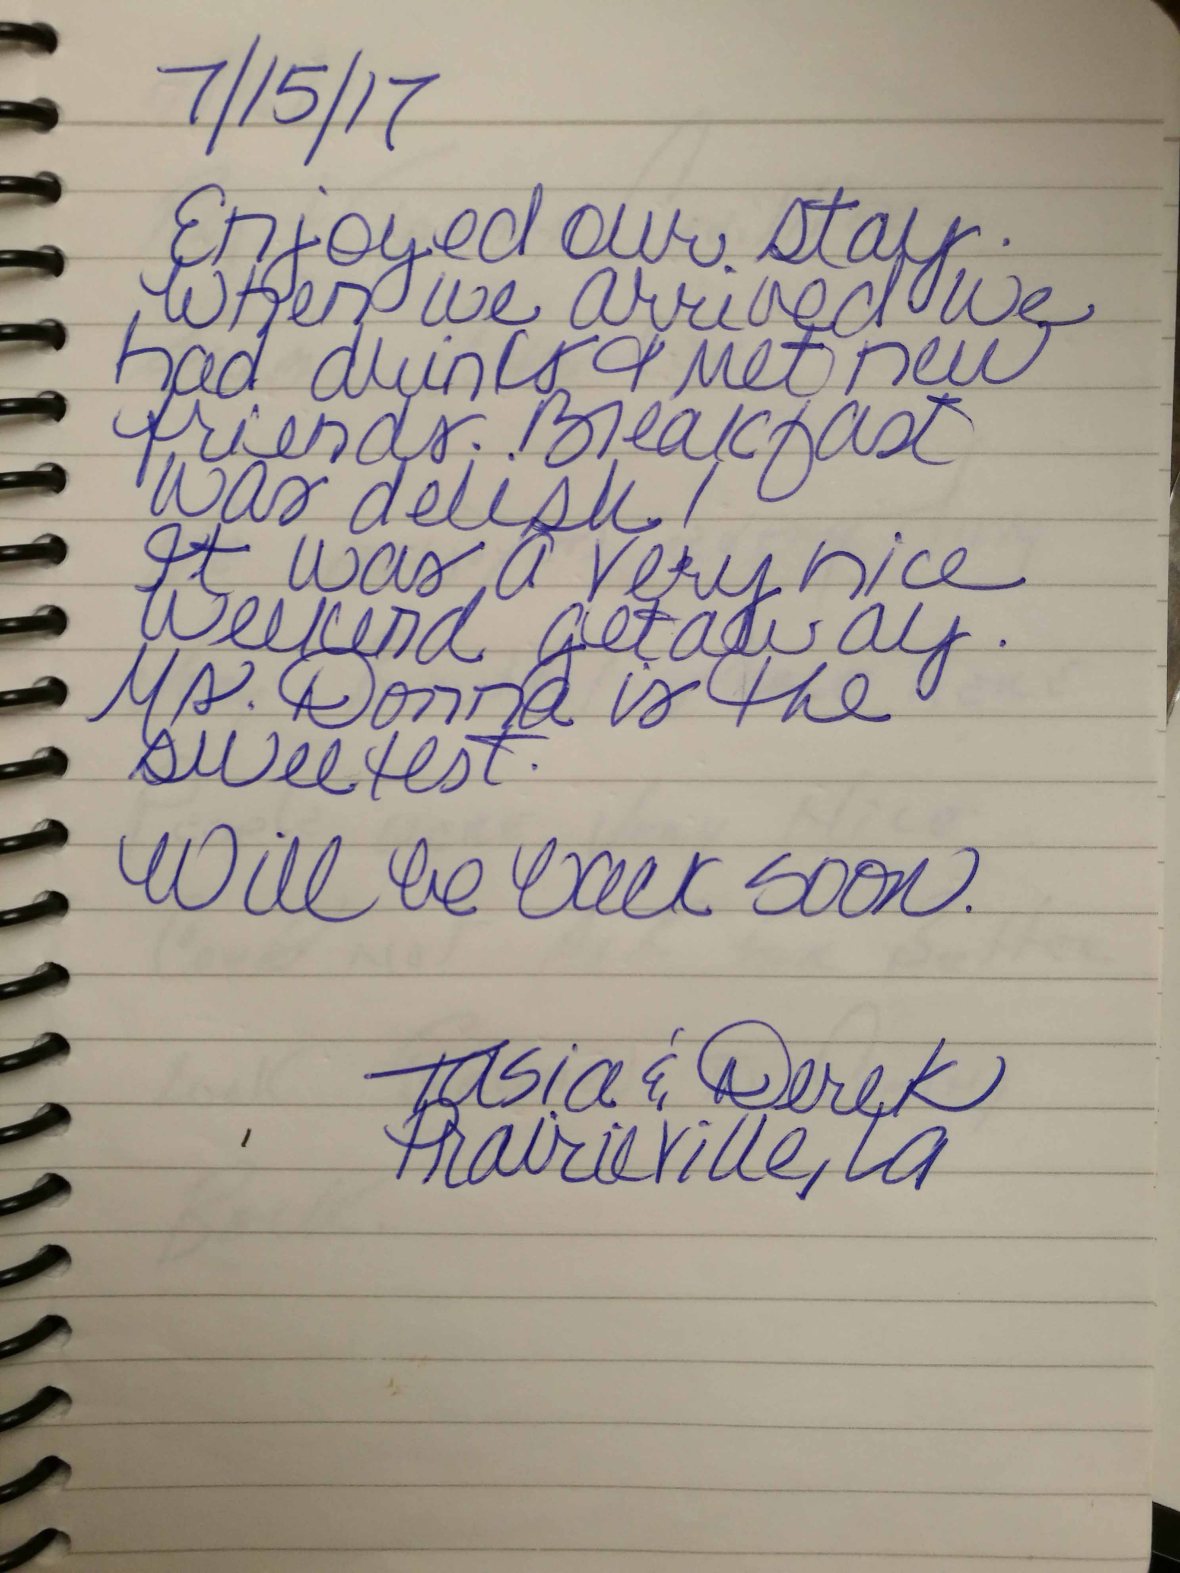 7/15/17
Enjoyed our stay.
When we arrived we
had drinks & met new
friends. Breakfast
was delish!
It was a very nice
weekend getaway.
Ms. Donna is the
sweetest.
Will be back soon.
Tasia & Derek
Prairieville, La